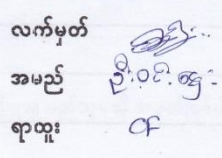 လက်မှတ်
အမည် ဦးဝင်းဌေး
ရာထူး CF